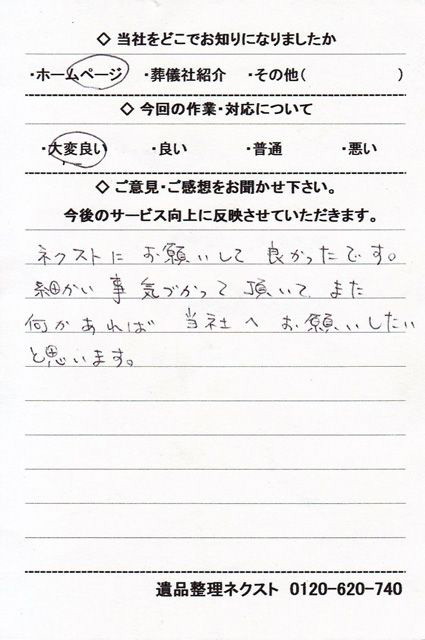 ◇ 当社をどこでお知りになりましたか
・ホームページ ・葬儀社紹介 ・その他( )
◇ 今回の作業・対応について
・大変良い ・良い ・普通 ・悪い
◇ ご意見・ご感想をお聞かせ下さい。
今後のサービス向上に反映させていただきます。
ネクストに お願いして 良かったです。
細かい 事 気づかって 頂いて、また
何かあれば 当社へ お願いしたい
と思います。
遺品整理ネクスト 0120-620-740